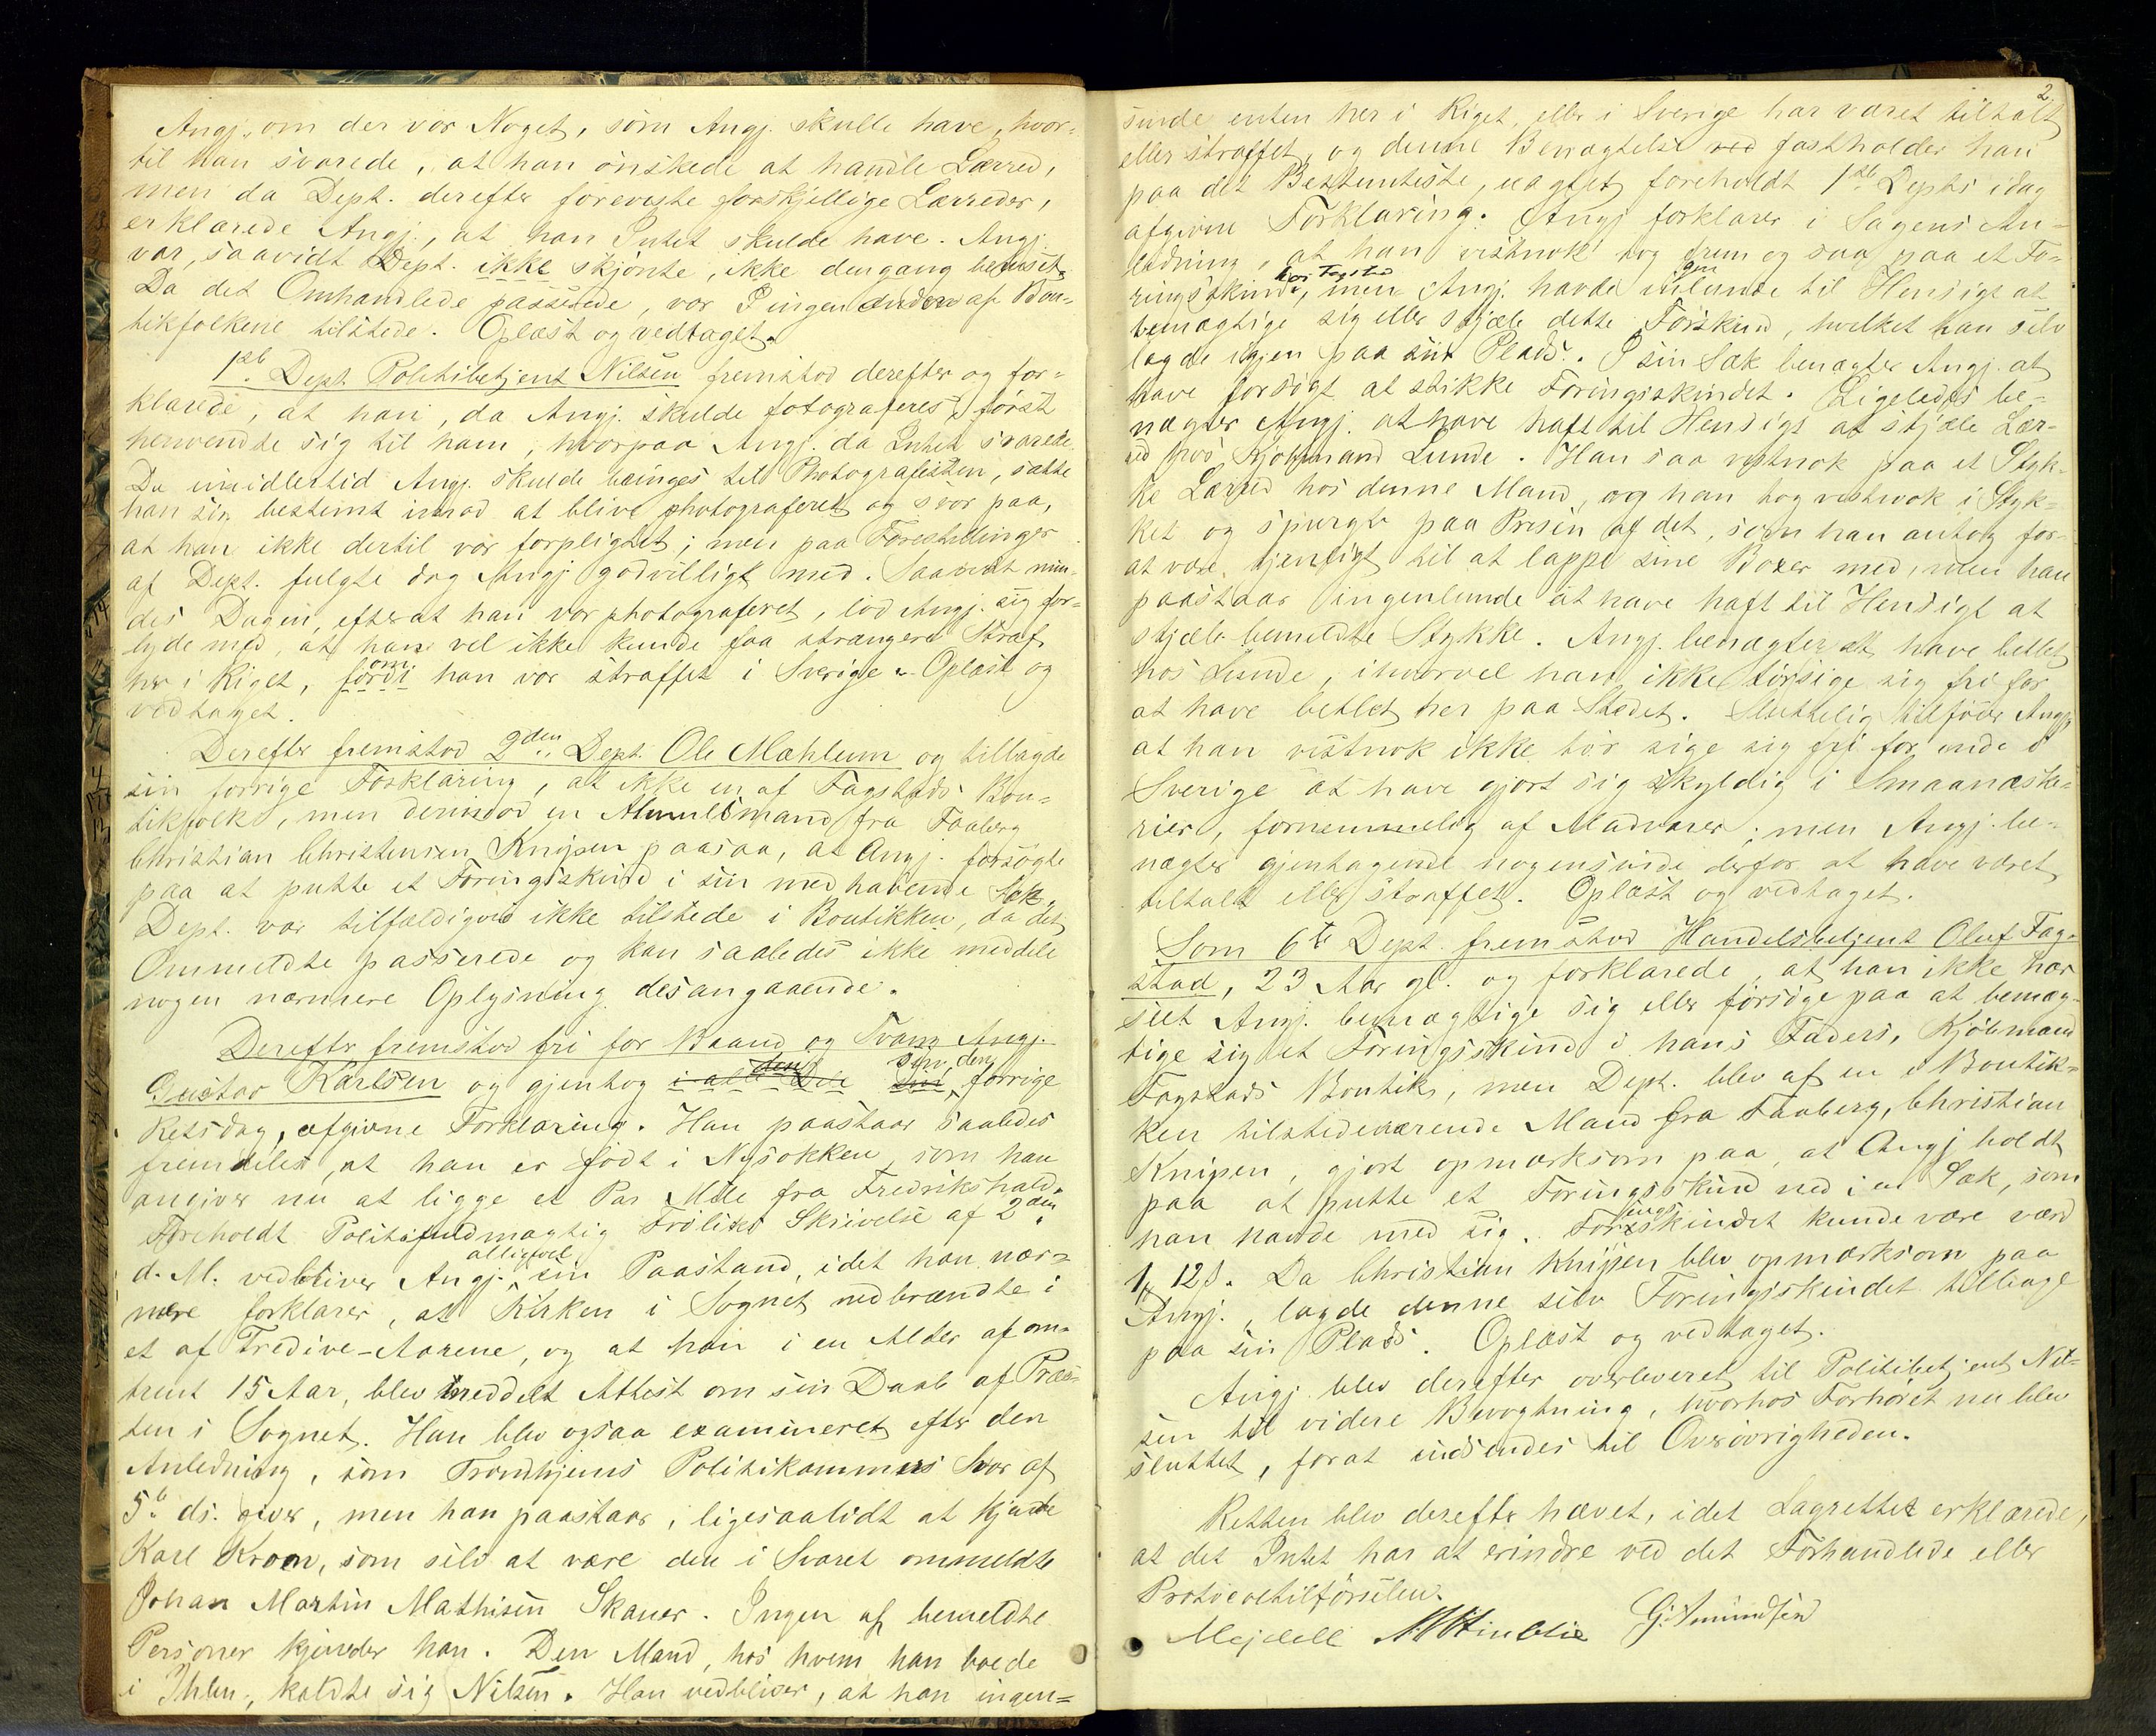 Angj. om der var Noget, som Angj. skulle have, hvor-
til han svarede, at han ønskede at handle Lærred,
men da Dept. derefter foreviste forskjellige Lærreder,
erklærede Angj., at han Intet skulde have. Angj.
var, saavidt Dept. ikke skjønte, ikke dengang beruset.
Da det Omhandlede passerede, var Ingen anden af Bou-
tikfolkene tilstede. Oplæst og vedtaget.
1ste Dept. Politibetjent Nilsen fremstod derefter og for-
klarede, at han, da Angj. skulde fotograferes, først
henvendte sig til ham, hvorpaa Angj. da Intet svarede.
Da imidlertid Angj. skulde bringes til Photografisten, satte
han sig bestemt imod at blive photograferet og svor paa,
at han ikke dertil var forpligtet; men paa Forestillinger
af Dept. fulgte dog Angj. godvilligt med. Saavidt min-
des Dagen, efterat han var photograferet, lod Angj. sig for-
lyde med, at han vel ikke kunde faa strængere Straf
her i Riget, fordi om han var straffet i Sverige. Oplæst og
vedtaget.
Derefter fremstod 2den Dept. Ole Mæhlum og tillagde
sin forrige Forklaring, at ikke en af Fagstads Bou-
tikfolk, men derimod en Almuesmand fra Faaberg
Christian Christensen Knipen paasaa, at Angj. forsøgte
paa at putte et Foringsskind i sin medhavende Sæk.
Dept. var tilfældigvis ikke tilstede i Boutikken, da det
Ommeldte passerede og kan saaledes ikke meddele
nogen nærmere Oplysning desangaaende.
Derefter fremstod fri for Baand og Tvang Angj.
Gustav Karlsen og gjentog i alle Dele den sin sin, den forrige
Retsdag, afgivne Forklaring. Han paastaar saaledes
fremdeles, at han er født i Nysokken, som han
angiver nu at ligge et Par Mile fra Fredrikshald.
Foreholdt Politifuldmægtig Frølichs Skrivelse af 2den
d. M. vedbliver Angj. alligevel sin Paastand, idet han nær-
mere forklarer, at Kirken i Sognet nedbrændte i
et af Tredive-Aarene, og at han i en Alder af om-
trent 15 Aar, blev meddelt Attest om sin Daab af Præs-
ten i Sognet. Han blev ogsaa examineret efter den
Anledning, som Trondhjems Politikammers Svar af
5te ds. giver, men han paastaar, ligesaalidt at kjende
Karl Kroon, som selv at være den i Svaret ommeldte
Johan Martin Mathisen Skaner. Ingen af bemeldte
Personer kjender han. Den Mand, hos hvem han boede
i Ihlen, kaldte sig Nilsen. Han vedbliver, at han ingen-
2
sinde enten her i Riget eller i Sverige har været tiltalt
eller straffet, og denne Benægtelse ved fastholder han
paa det Bestemteste, uagtet foreholdt 1ste Depts idag
afgivne Forklaring. Angj. forklarer i Sagens An-
ledning, at han vistnok tog frem og saa paa et Fo-
ringsskind hos Fagstad, men Angj. havde ingenlunde til Hensigt at
bemægtige sig eller stjæle dette Forskind, hvilket han selv
lagde igjen paa sin Plads. I sin Sæk benægter Angj. at
have forsøgt at stikke Foringsskindet. Ligeledes be-
nægter Angj. at have haft til Hensigt at stjæle Lær-
red hos Kjøbmand Lunde. Han saa vistnok paa et Styk-
ke Lærred hos denne Mand, og han tog vistnok i Styk-
ket og spurgte paa Prisen af det, som han antog for
at være tjenligt til at lappe sine Boxer med, men han
paastaar ingenlunde at have haft til Hensigt at
stjæle bemeldte Stykke. Angj. benægter at have betlet
hos Lunde, ihvorvel han ikke tør sige sig fri for
at have betlet her paa Stedet. Sluttelig tilføier Angj.
at han vistnok ikke tør sige sig fri for inde i
Sverige at have gjort sig skyldig i Smaanaske-
rier, fornemmelig af Madvarer; men Angj. be-
nægter gjentagende nogensinde derfor at have været
tiltalt eller straffet. Oplæst og vedtaget.
Som 6te Dept. fremstod Handelsbetjent Oluf Fag-
stad, 23 Aar gl. og forklarede, at han ikke har
seet Angj. bemægtige sig eller forsøge paa at bemæg-
tige sig et Foringsskind i hans Faders, Kjøbmand
Fagstads Boutik, men Dept. blev af en i Boutik-
ken tilstedeværende Mand fra Faaberg, Christian
Knipen, gjort opmærksom paa, at Angj. holdt
paa at putte et Foringsskind ned i en Sæk, som
han havde med sig. Foringsskindet kunde være værd
12 s. Da Christian Knipen blev opmærksom paa
Angj., lagde denne selv Foringsskindet tilbage
paa sin Plads. Oplæst og vedtaget.
Angj. blev derefter overleveret til Politibetjent Nil-
sen til videre Bevogtning, hvorhos Forhøret nu blev
sluttet, forat indsendes til Overøvrigheden.
Retten blev derefter hævet, idet Lagrettet erklærede,
at det Intet har at erindre ved det Forhandlede eller
Protocoltilførselen.
Mejdell G. Amundsen